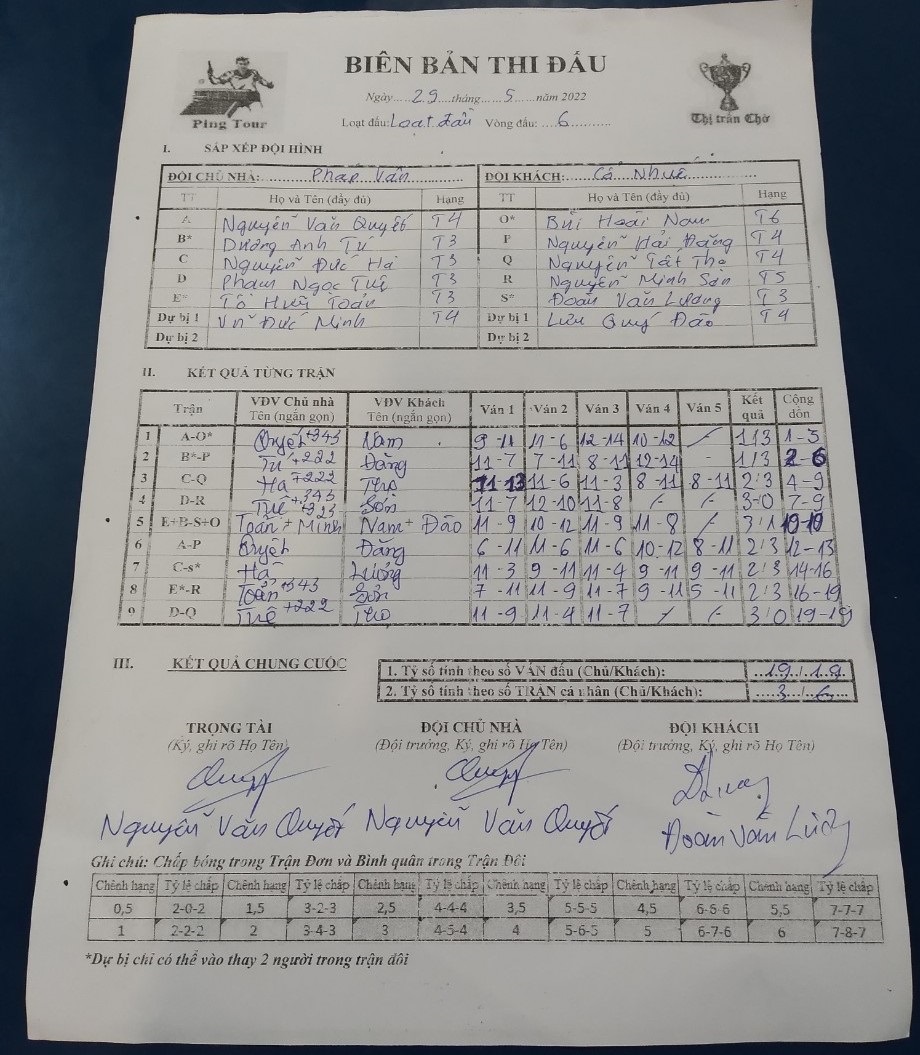 BIÊN BẢN THI ĐẤU
Ping Tour
Thị trấn Chờ
Ngày.....29....tháng......5......năm 2022
Loạt đấu: Loạt đấu Vòng đấu: ....6..........
I. SẮP XẾP ĐỘI HÌNH
ĐỘI CHỦ NHÀ: Pháp Vân ĐỘI KHÁCH: Cổ Nhuế
TT Họ và Tên (đầy đủ) Hạng TT Họ và Tên (đầy đủ) Hạng
A Nguyễn Văn Quyết T4 O* Bùi Hoài Nam T6
B* Dương Anh Tú T3 P Nguyễn Hải Đăng T4
C Nguyễn Đức Hà T3 Q Nguyễn Tất Thọ T4
D Phạm Ngọc Tuệ T3 R Nguyễn Minh Sơn T5
E* Tô Hữu Toán T3 S* Đoàn Văn Lượng T3
Dự bị 1 Vũ Đức Minh T4 Dự bị 1 Lưu Quý Đão T4
Dự bị 2 Dự bị 2
II. KẾT QUẢ TỪNG TRẬN
Trận VĐV Chủ nhà Tên (ngắn gọn) VĐV Khách Tên (ngắn gọn) Ván 1 Ván 2 Ván 3 Ván 4 Ván 5 Kết quả Cộng dồn
1 A-O* Quyết +343 Nam 9-11 11-6 12-14 10-12 / 1/3 1-3
2 B*-P Tú +222 Đăng 11-7 7-11 8-11 12-14 - 1/3 2-6
3 C-Q Hà +222 Thọ 11-13 11-6 11-3 8-11 8-11 2/3 4-9
4 D-R Tuệ +343 Sơn 11-7 12-10 11-8 / / 3-0 7-9
5 E+B-S+O Toán + Minh +323 Nam + Đão 11-9 10-12 11-9 11-8 / 3/1 10-10
6 A-P Quyết Đăng 6-11 11-6 11-6 10-12 8-11 2/3 12-13
7 C-s* Hà Lượng 11-3 9-11 11-4 9-11 9-11 2/3 14-16
8 E*-R Toán +343 Sơn 7-11 11-9 11-7 9-11 5-11 2/3 16-19
9 D-Q Tuệ +222 Thọ 11-9 11-4 11-7 / / 3/0 19-19
III. KẾT QUẢ CHUNG CUỘC
1. Tỷ số tính theo số VÁN đấu (Chủ/Khách): ..19./.19..
2. Tỷ số tính theo số TRẬN cá nhân (Chủ/Khách): ....3../..6....
TRỌNG TÀI ĐỘI CHỦ NHÀ ĐỘI KHÁCH
(Ký, ghi rõ Họ Tên) (Đội trưởng, Ký, ghi rõ Họ Tên) (Đội trưởng, Ký, ghi rõ Họ Tên)
Nguyễn Văn Quyết Nguyễn Văn Quyết Đoàn Văn Lượng
Ghi chú: Chấp bóng trong Trận Đơn và Bình quân trong Trận Đôi
Chênh hạng Tỷ lệ chấp Chênh hạng Tỷ lệ chấp Chênh hạng Tỷ lệ chấp Chênh hạng Tỷ lệ chấp Chênh hạng Tỷ lệ chấp Chênh hạng Tỷ lệ chấp
0,5 2-0-2 1,5 3-2-3 2,5 4-4-4 3,5 5-5-5 4,5 6-5-6 5,5 7-7-7
1 2-2-2 2 3-4-3 3 4-5-4 4 5-6-5 5 6-7-6 6 7-8-7
*Dự bị chỉ có thể vào thay 2 người trong trận đôi